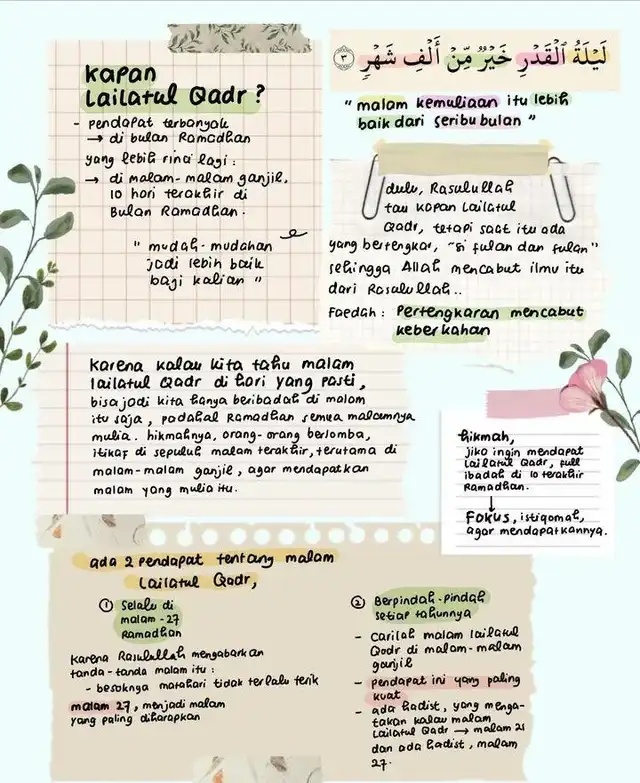 kapan
Lailatul Qadr ?
- pendapat terbanyak
→ di bulan Ramadhan
yang lebih rinci lagi :
→ di malam-malam ganjil,
10 hari terakhir di
Bulan Ramadhan.
" mudah-mudahan
jadi lebih baik
bagi kalian "
لَيْلَةُ الْقَدْرِ خَيْرٌ مِّنْ أَلْفِ شَهْرٍ ٣
" malam kemuliaan itu lebih
baik dari seribu bulan "
dulu, Rasulullah
tau kapan Lailatul
Qadr, tetapi saat itu ada
yang bertengkar, "si fulan dan fulan"
sehingga Allah mencabut ilmu itu
dari Rasulullah..
Faedah : Pertengkaran mencabut
keberkahan
karena kalau kita tahu malam
lailatul Qadr di hari yang pasti,
bisa jadi kita hanya beribadah di malam
itu saja, padahal Ramadhan semua malamnya
mulia. hikmahnya, orang-orang berlomba,
itikaf di sepuluh malam terakhir, terutama di
malam-malam ganjil, agar mendapatkan
malam yang mulia itu.
hikmah,
jika ingin mendapat
Lailatul Qadr, full
ibadah di 10 terakhir
Ramadhan.
↓
FOKUS, istiqomah,
agar mendapatkannya.
ada 2 pendapat tentang malam
Lailatul Qadr,
① Selalu di
malam -27
Ramadhan
karena Rasulullah mengabarkan
tanda-tanda malam itu :
- besoknya matahari tidak terlalu terik
malam 27, menjadi malam
yang paling diharapkan
② Berpindah-pindah
setiap tahunnya
- carilah malam lailatul
Qodr di malam-malam
ganjil
- pendapat ini yang paling
kuat
- ada hadist, yang menga-
takan kalau malam
Lailatul Qadr → malam 21
dan ada hadist, malam
27.